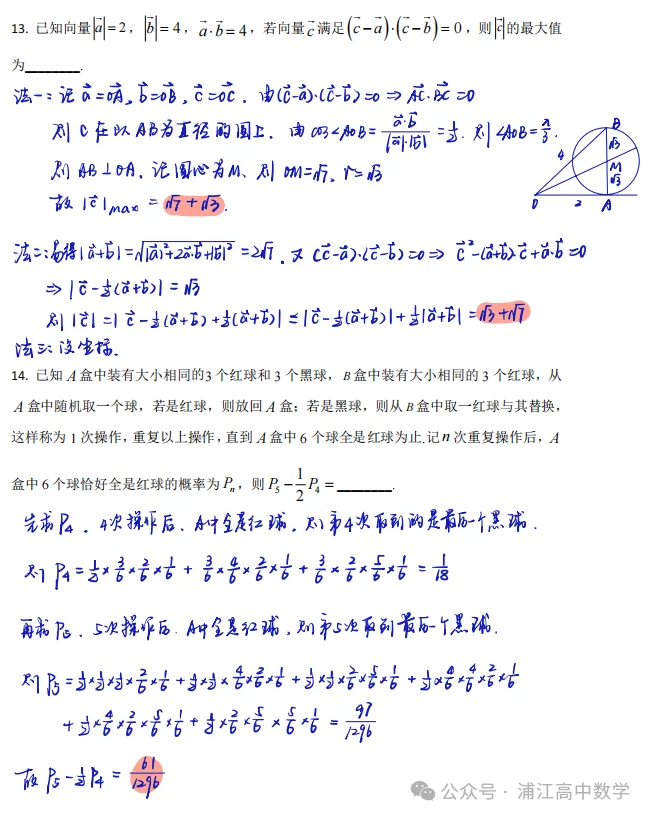 13. 已知向量|a⃗|=2，|b⃗|=4，a⃗·b⃗=4，若向量c⃗满足(c⃗-a⃗)·(c⃗-b⃗)=0，则|c⃗|的最大值
为________.
法一：记 a⃗=OA⃗, b⃗=OB⃗, c⃗=OC⃗. 由(c⃗-a⃗)·(c⃗-b⃗)=0 ⇒ AC⃗·BC⃗=0
则 C 在以 AB 为直径的圆上. 由 cos∠AOB= a⃗·b⃗/(|a⃗|·|b⃗|) =1/2. 则∠AOB=π/3.
则 AB⊥OA. 记圆心为M、则 OM=√7, r=√3
故 |c⃗|max = √7+√3.
B
√3
4
M
√3
O
2
A
法二：易得|a⃗+b⃗|=√(|a⃗|²+2a⃗·b⃗+|b⃗|²)=2√7. 又 (c⃗-a⃗)·(c⃗-b⃗)=0 ⇒ c⃗²-(a⃗+b⃗)·c⃗+a⃗·b⃗=0
⇒ |c⃗-1/2(a⃗+b⃗)|=√3
则|c⃗|=|c⃗-1/2(a⃗+b⃗)+1/2(a⃗+b⃗)| ≤ |c⃗-1/2(a⃗+b⃗)|+1/2|a⃗+b⃗|=√3+√7
法三：设坐标.
14. 已知 A 盒中装有大小相同的3 个红球和 3 个黑球，B 盒中装有大小相同的 3 个红球，从
A 盒中随机取一个球，若是红球，则放回 A 盒；若是黑球，则从 B 盒中取一红球与其替换，
这样称为 1 次操作，重复以上操作，直到 A 盒中 6 个球全是红球为止.记 n 次重复操作后，A
盒中 6 个球恰好全是红球的概率为 Pn，则 P5-1/2P4=________.
先求P4. 4次操作后. A中全是红球. 则第4次取到的是最后一个黑球.
则 P4=1/2×3/6×2/6×1/6 + 3/6×4/6×2/6×1/6 + 3/6×2/6×5/6×1/6 = 1/18
再求P5. 5次操作后. A中全是红球, 则第5次取到最后一个黑球.
则P5=1/2×1/2×1/2×2/6×1/6 +1/2×1/2×4/6×2/6×1/6 +1/2×1/2×2/6×5/6×1/6 +1/2×4/6×4/6×2/6×1/6
+1/2×4/6×2/6×5/6×1/6 +1/2×2/6×5/6×5/6×1/6 = 97/1296
故 P5-1/2P4 = 61/1296
公众号 · 浦江高中数学